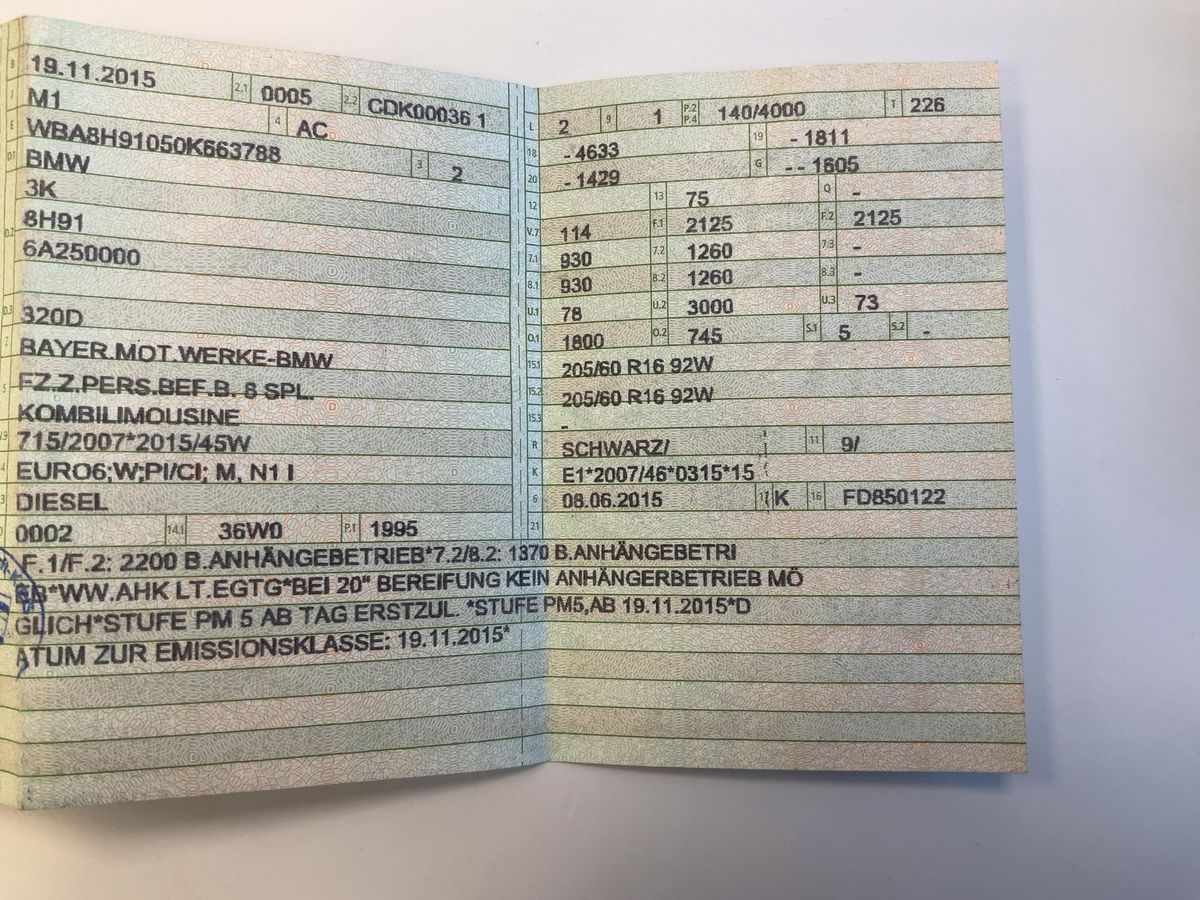 B 19.11.2015 2.1 0005 2.2 CDK00036 1
J M1 4 AC
E WBA8H91050K663788 3 2
D.1 BMW
3K
D.2 8H91
6A250000
D.3 320D
2 BAYER.MOT.WERKE-BMW
5 FZ.Z.PERS.BEF.B. 8 SPL.
KOMBILIMOUSINE
V.9 715/2007*2015/45W
14 EURO6;W;PI/CI; M, N1 I
P.3 DIESEL
10 0002 14.1 36W0 P.1 1995
L 2 9 1 P.2 P.4 140/4000 T 226
18 -4633 19 -1811
20 -1429 G --1605
12 13 75 Q -
V.7 114 F.1 2125 F.2 2125
7.1 930 7.2 1260 7.3 -
8.1 930 8.2 1260 8.3 -
U.1 78 U.2 3000 U.3 73
O.1 1800 O.2 745 S.1 5 S.2 -
15.1 205/60 R16 92W
15.2 205/60 R16 92W
15.3 -
R SCHWARZ/ 11 9/
K E1*2007/46*0315*15
6 08.06.2015 17 K 16 FD850122
21
F.1/F.2: 2200 B.ANHÄNGEBETRIEB*7.2/8.2: 1370 B.ANHÄNGEBETRI
EB*WW.AHK LT.EGTG*BEI 20" BEREIFUNG KEIN ANHÄNGERBETRIEB MÖ
GLICH*STUFE PM 5 AB TAG ERSTZUL. *STUFE PM5,AB 19.11.2015*D
ATUM ZUR EMISSIONSKLASSE: 19.11.2015*